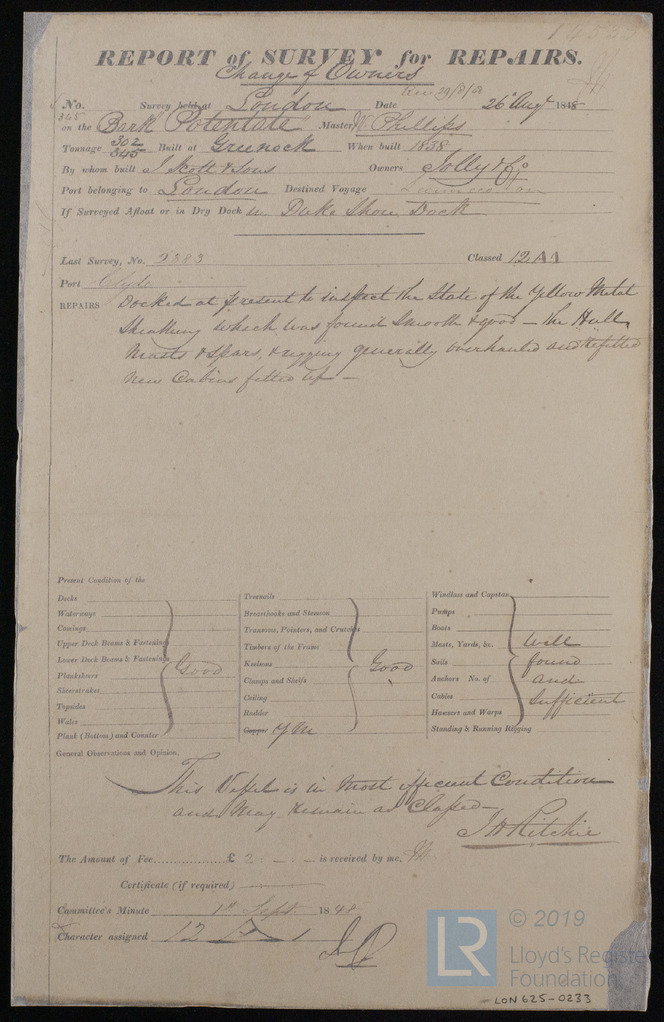 REPORT of SURVEY for REPAIRS.
Change of Owners
No. 365 Survey held at London Date 26 Augt 1848
on the Bark Potentate Master W Phillips
Tonnage 302 345 Built at Greenock When built 1838
By whom built J Scott & Sons Owners Jolly & Co
Port belonging to London Destined Voyage
If Surveyed Afloat or in Dry Dock in Duke Shore Dock
Last Survey, No. 9383 Classed 12 A1
Port Clyde
REPAIRS Docked at present to inspect the State of the Yellow Metal
Sheathing which was found Smooth & good – the Hull
Masts & Spars, & rigging generally overhauled and refitted
New Cabins fitted up –
Present Condition of the
Decks
Waterways
Comings
Upper Deck Beams & Fastenings
Lower Deck Beams & Fastenings
Plankshears
Sheerstrakes
Topsides
Wales
Plank (Bottom) and Counter
Good
Treenails
Breasthooks and Stemson
Transoms, Pointers, and Crutches
Timbers of the Frame
Keelsons
Clamps and Shelfs
Ceiling
Rudder
Copper YM
Good
Windlass and Capstan
Pumps
Boats
Masts, Yards, &c.
Sails
Anchors No. of
Cables
Hawsers and Warps
Standing & Running Rigging
Well
found
and
Sufficient
General Observations and Opinion,
This Vessel is in most efficient Condition
and May Remain as Classed –
J H Ritchie
The Amount of Fee £ 2 is received by me,
Certificate (if required)
Committee's Minute 1st Sept. 1848
Character assigned 12 A 1
LR © 2019
Lloyd's Register
Foundation
LON625-0233